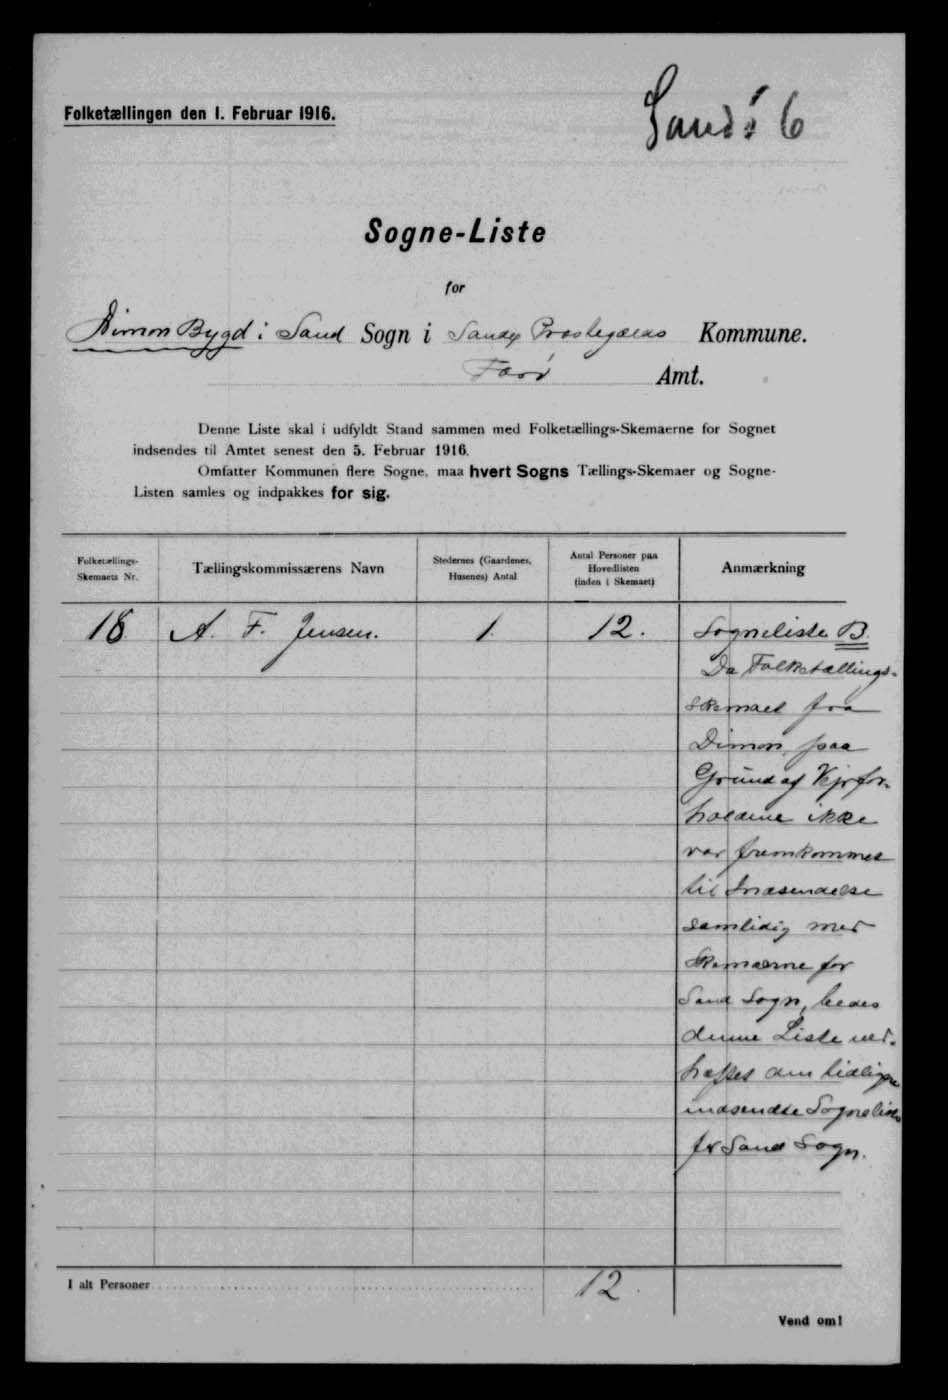 Folketællingen den 1. Februar 1916.
Sandö 6
Sogne-Liste
for
Dimon Bygd i Sand Sogn i Sandø Præstegælds Kommune.
Færö Amt.
Denne Liste skal i udfyldt Stand sammen med Folketællings-Skemaerne for Sognet
indsendes til Amtet senest den 5. Februar 1916.
Omfatter Kommunen flere Sogne, maa hvert Sogns Tællings-Skemaer og Sogne-
Listen samles og indpakkes for sig.
Folketællings-
Skemaets Nr.
Tællingskommissærens Navn
Stedernes (Gaardenes,
Husenes) Antal
Antal Personer paa
Hovedlisten
(inden i Skemaet)
Anmærkning
18. A. F. Jensen. 1. 12. Sogneliste B.
Da Folketællings-
skemaet fra
Dimon, paa
Grund af Vejrfor-
holdene ikke
var fremkommet
til Indsendelse
samtidig med
Skemaerne for
Sand Sogn, bedes
denne Liste ved-
hæftet den tidligere
indsendte Sogneliste
for Sand Sogn.
I alt Personer 12.
Vend om!